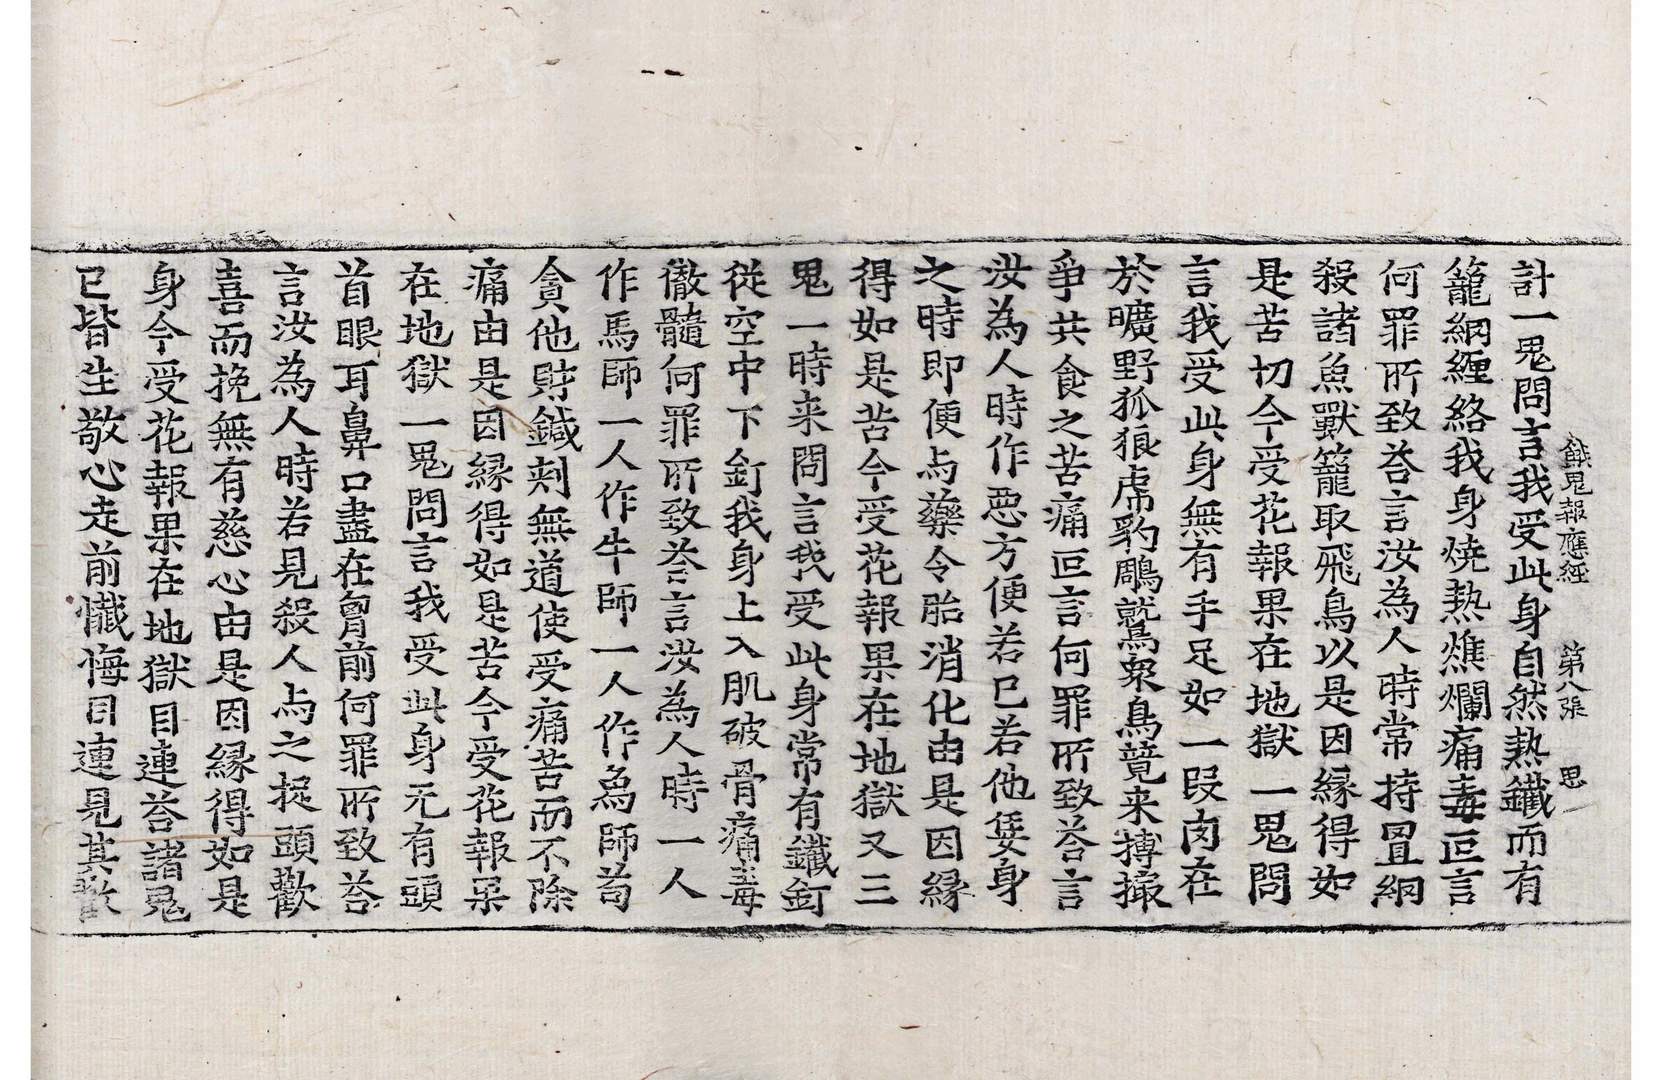 餓鬼報應經 第八張 思
計一鬼問言我受此身自然熱鐵而有
籠網纏絡我身燒熱燋爛痛毒叵言
何罪所致荅言汝為人時常持罝網
殺諸魚獸籠取飛鳥以是因緣得如
是苦切今受花報果在地獄一鬼問
言我受此身無有手足如一段肉在
於曠野狐狼虎豹鵰鷲衆鳥競来搏撮
爭共食之苦痛叵言何罪所致荅言
汝為人時作惡方便若已若他墮身
之時即便与藥令胎消化由是因緣
得如是苦今受花報果在地獄又三
鬼一時来問言我受此身常有鐵釘
從空中下釘我身上入肌破骨痛毒
徹髓何罪所致荅言汝為人時一人
作馬師一人作牛師一人作為師苟
貪他財鍼刾無道使受痛苦而不除
痛由是因緣得如是苦今受花報果
在地獄一鬼問言我受此身无有頭
首眼耳鼻口盡在胷前何罪所致荅
言汝為人時若見殺人与之捉頭歡
喜而挽無有慈心由是因緣得如是
身今受花報果在地獄目連荅諸鬼
已皆生敬心走前懺悔目連見其歡